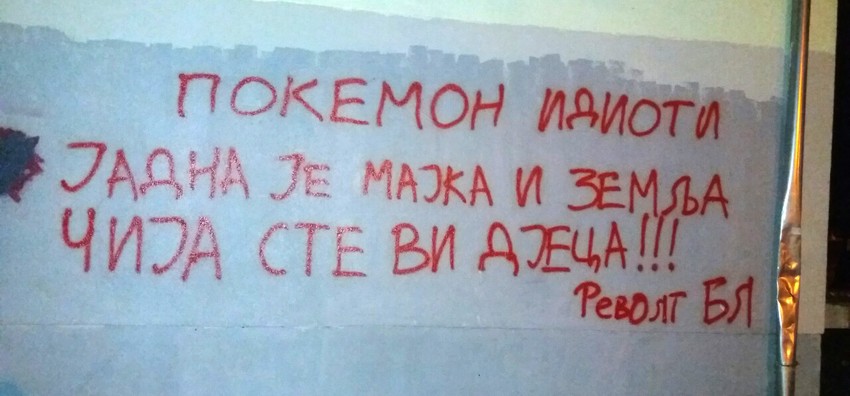 ПОКЕМОН ИДИОТИ
ЈАДНА ЈЕ МАЈКА И ЗЕМЉА
ЧИЈА СТЕ ВИ ДЈЕЦА!!!
Револт БЛ